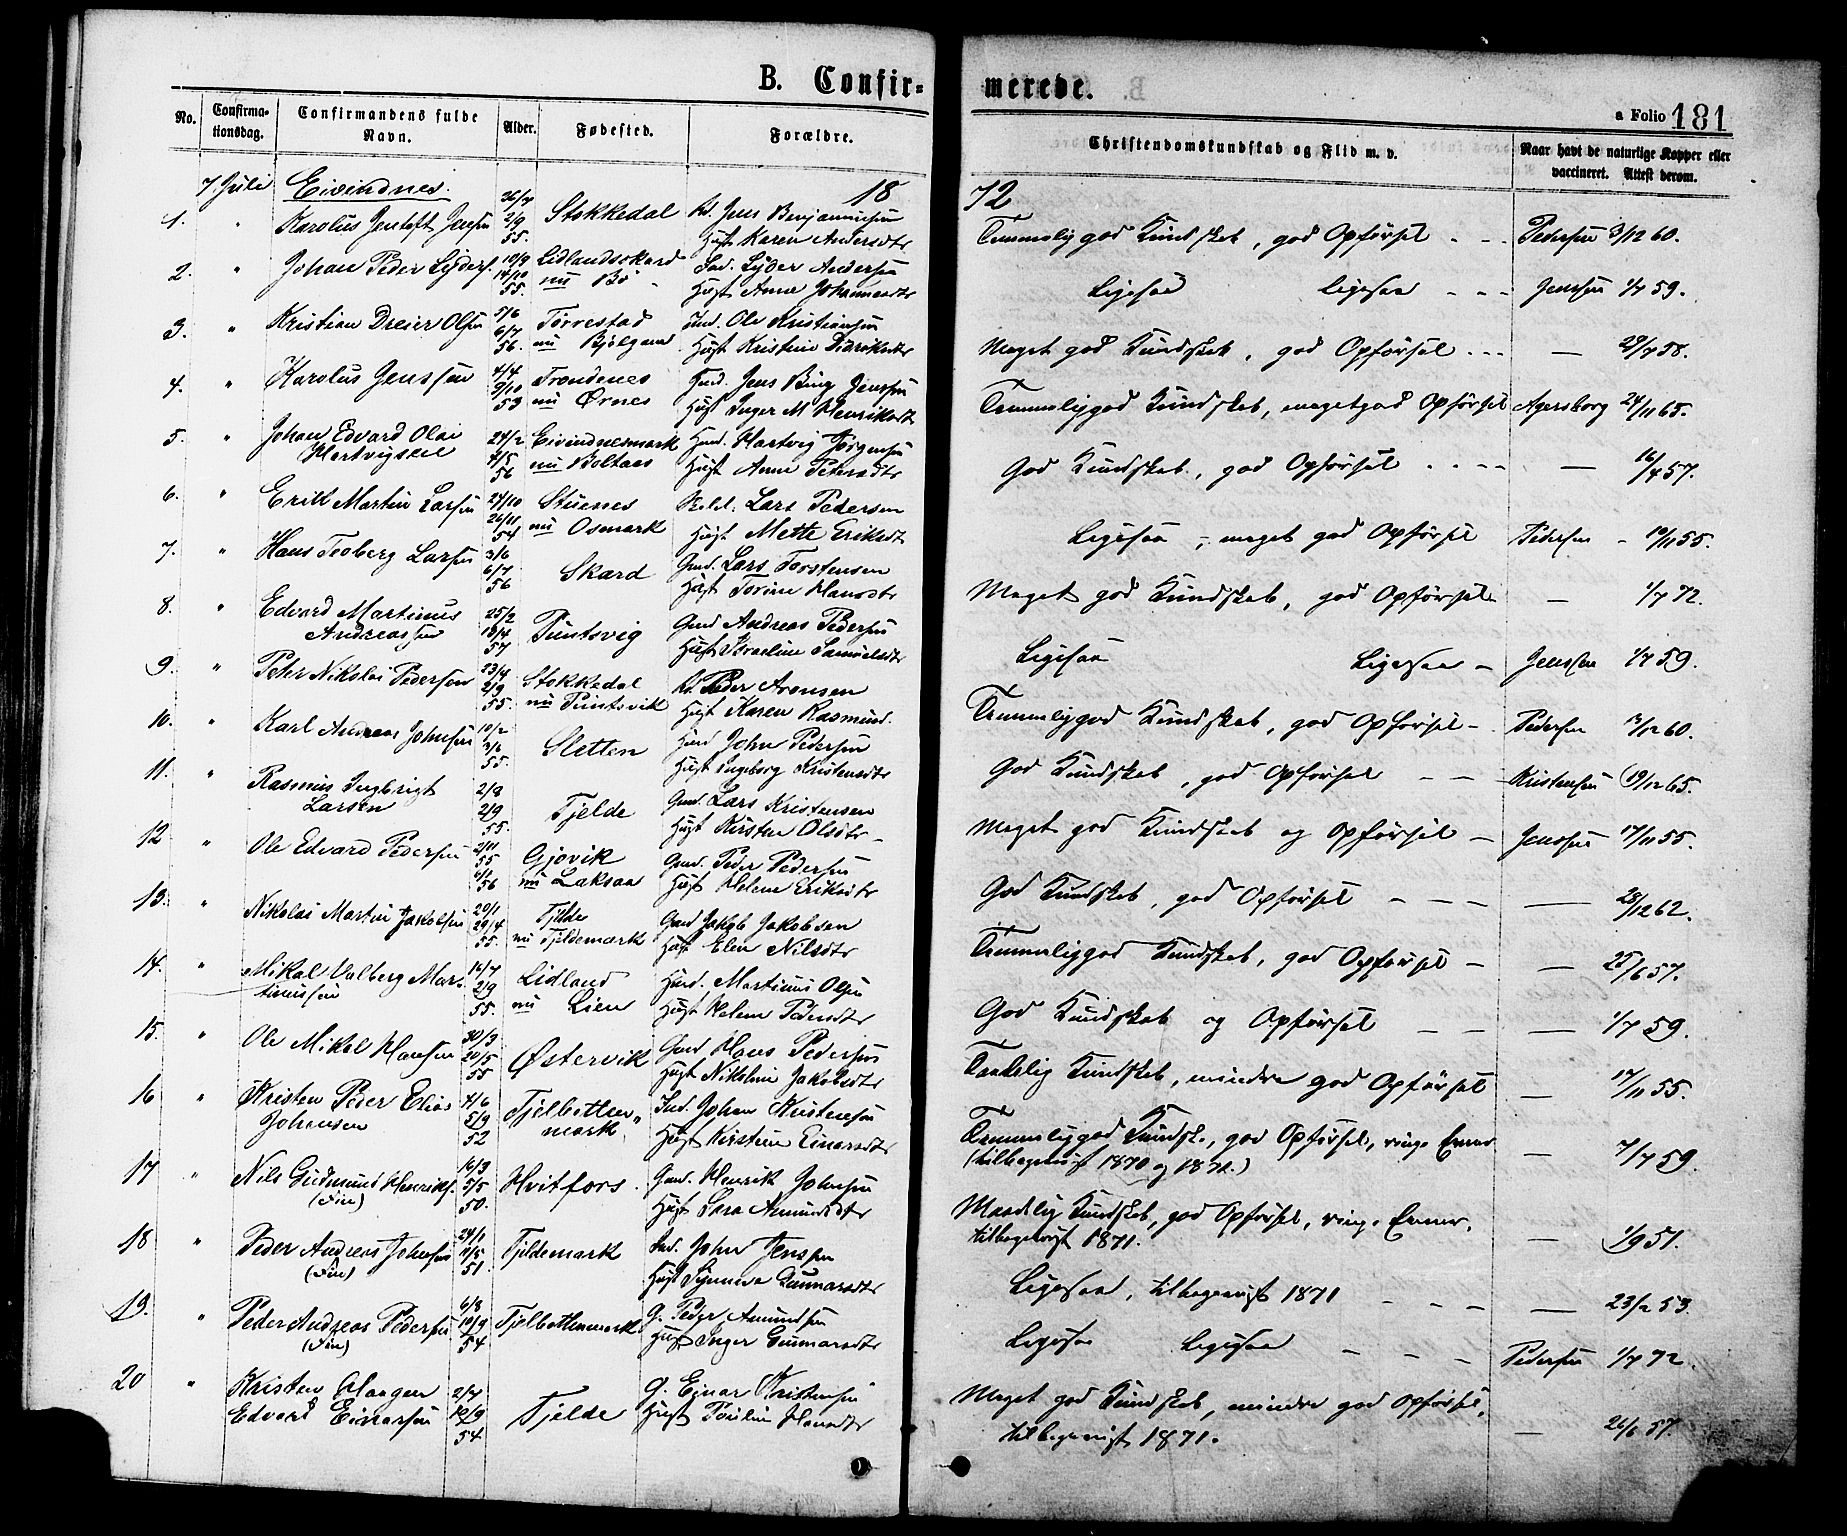 B. Confir-
merede.
a Folio 181
No.
Confirma-
tionsdag.
Confirmandens fulde
Navn.
Alder.
Fødested.
Forældre.
Christendomskundskab og Flid m. v.
Naar havt de naturlige Kopper eller
vaccineret. Attest derom.
7. Juli Eivindnes. 18 72
1. " Karolus Jentoft Jensen 2/9 55. Stokkedal Jens Benjaminsen
Hust Karen Andersdtr
Temmelig god Kundskab, god Opførsel - - Pedersen 3/12 60.
2. " Johan Peder Lyders. 10/9 14/10 55. Lidlandsskard
nu Bø
Ind. Lyder Andersen
Hust Anne Johannesdtr
Ligesaa Ligesaa - - - Jenssen 1/7 59.
3. " Kristian Dreier Olsen 5/6 6/7 56. Torrestad
nu
Ind. Ole Kristiansen
Hust Kristine Didriksdtr
Meget god Kundskab, god Opførsel ... — 29/7 58.
4. " Karolus Jenssen 4/4 9/10 53 Trondenes
nu Ørnes
Hmd. Jens Bing Jenssen
Hust Inger M Henriksdtr
Temmelig god Kundskab, meget god Opførsel Agersborg 24/11 65.
5. " Johan Edvard Olai
Hartvigsen
24/2 4/5 56 Eivindnesmark
nu Boltaas
Hmd. Hartvig Jørgensen
Hust Anne Petersdtr
God Kundskab, god Opførsel .... — 16/4 57.
6. " Erik Martin Larsen 24/10 26/11 54 Stuenes
nu Osmark
Lars Pedersen
Hust Mette Eriksdtr
Ligesaa -, meget god Opførsel Pedersen - 10/11 55.
7. " Hans Teoberg Larsen 3/6 6/7 56 Skard Gmd. Lars Torstensen
Hust Torine Hansdtr
Meget god Kundskab, god Opførsel — 1/7 72.
8. " Edvard Martinus
Andreassen
25/2 13/4 57 Puntsvig Gmd Andreas Pedersen
Hust Karoline Samuelsdtr
Ligesaa Ligesaa - Jenssen 1/7 59.
9. " Peter Nikolai Pedersen 23/4 2/9 55. Stokkedal
nu Puntsvik
Peder Aronsen
Hust Karen Rasmusd.
Temmelig god Kundskab, god Opførsel - Pedersen 3/12 60.
10. " Karl Andreas Johnsen 10/2 55. Sletten Hmd John Pedersen
Hust Ingeborg Kristensdtr
God Kundskab, god Opførsel - - Kristensen 19/12 65.
11. " Rasmus Ingbrigt
Larsen
2/8 2/9 55. Tjelde Gmd. Lars Kristensen
Hust Kirsten Olsdtr -
Meget god Kundskab og Opførsel - Jenssen 17/11 55.
12 " Ole Edvard Pedersen 2/11 55 6/1 56 Gjøvik
nu Laksaa
Gmd. Peder Pedersen
Hust Helene Eriksdtr
God Kundskab, god Opførsel - - - — 28/12 62.
13. " Nikolai Martin Jakobsen 20/1 29/4 55. Tjelde
nu Tjeldemark
Gmd Jakob Jakobsen
Hust Elen Nilsdtr
Temmelig god Kundskab, god Opførsel - — 25/6 57.
14. " Mikal Valberg Mar-
tinussen
16/7 2/9 55. Lidland
nu Lien
Hmd. Martinus Olsen
Hust Helene Pedersdtr
God Kundskab og Opførsel - - — 1/7 59.
15. " Ole Mikal Hansen 30/3 20/5 55 Østervik Gmd Hans Pedersen
Hust Nikoline Jakobsdtr
Taalelig Kundskab, mindre god Opførsel — 17/11 55.
16 " Kristen Peder Elias
Johansen
4/6 5/9 52 Tjelbotten-
mark
Ind. Johan Kristensen
Hust Kirstine Einarsdtr
Temmelig god Kundsk., god Opførsel, ringe Evner
(tilbagevist 1870 og 1871.)
— 7/7 59.
17 " Nils Gudmund Henriks.
(Fin)
16/3 5/5 50. Hvitfors. Gmd. Henrik Johnsen
Hust Sara Amundsdtr
Maadelig Kundskab, god Opførsel, ringe Evner,
tilbagevist 1871.
— 1/9 51.
18 " Peder Andreas Johnsen
(Fin)
24/1 4/5 51. Tjeldemark Ind. John Jenssen
Hust Synneva Gunnarsdtr
Ligesaa, tilbagevist 1871 - - - — 23/2 53.
19. " Peder Andreas Pedersen
(Fin)
6/8 10/9 54 Tjelbottenmark G. Peder Amundsen
Hust Inger Gunnarsdtr
Ligesaa Ligesaa - - - Pedersen 1/7 72.
20 " Kristen Haagen
Edvart Einarsen
2/7 10/9 54 Tjelde G. Einar Kristensen
Hust Pauline Hansdtr
Meget god Kundskab, mindre god Opførsel,
tilbagevist 1871.
— 26/6 57.